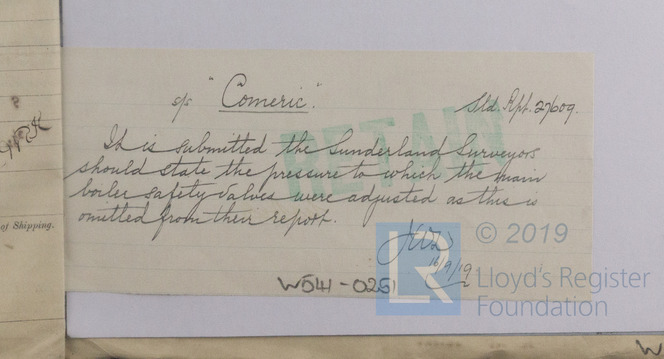 s/s "Comeric".
Sld. Rpt. 27609.
RETAIN
It is submitted the Sunderland Surveyors
should state the pressure to which the main
boiler safety valves were adjusted as this is
omitted from their report.
16/9/19
W541-0251
of Shipping.
LR
© 2019
Lloyd's Register
Foundation
W